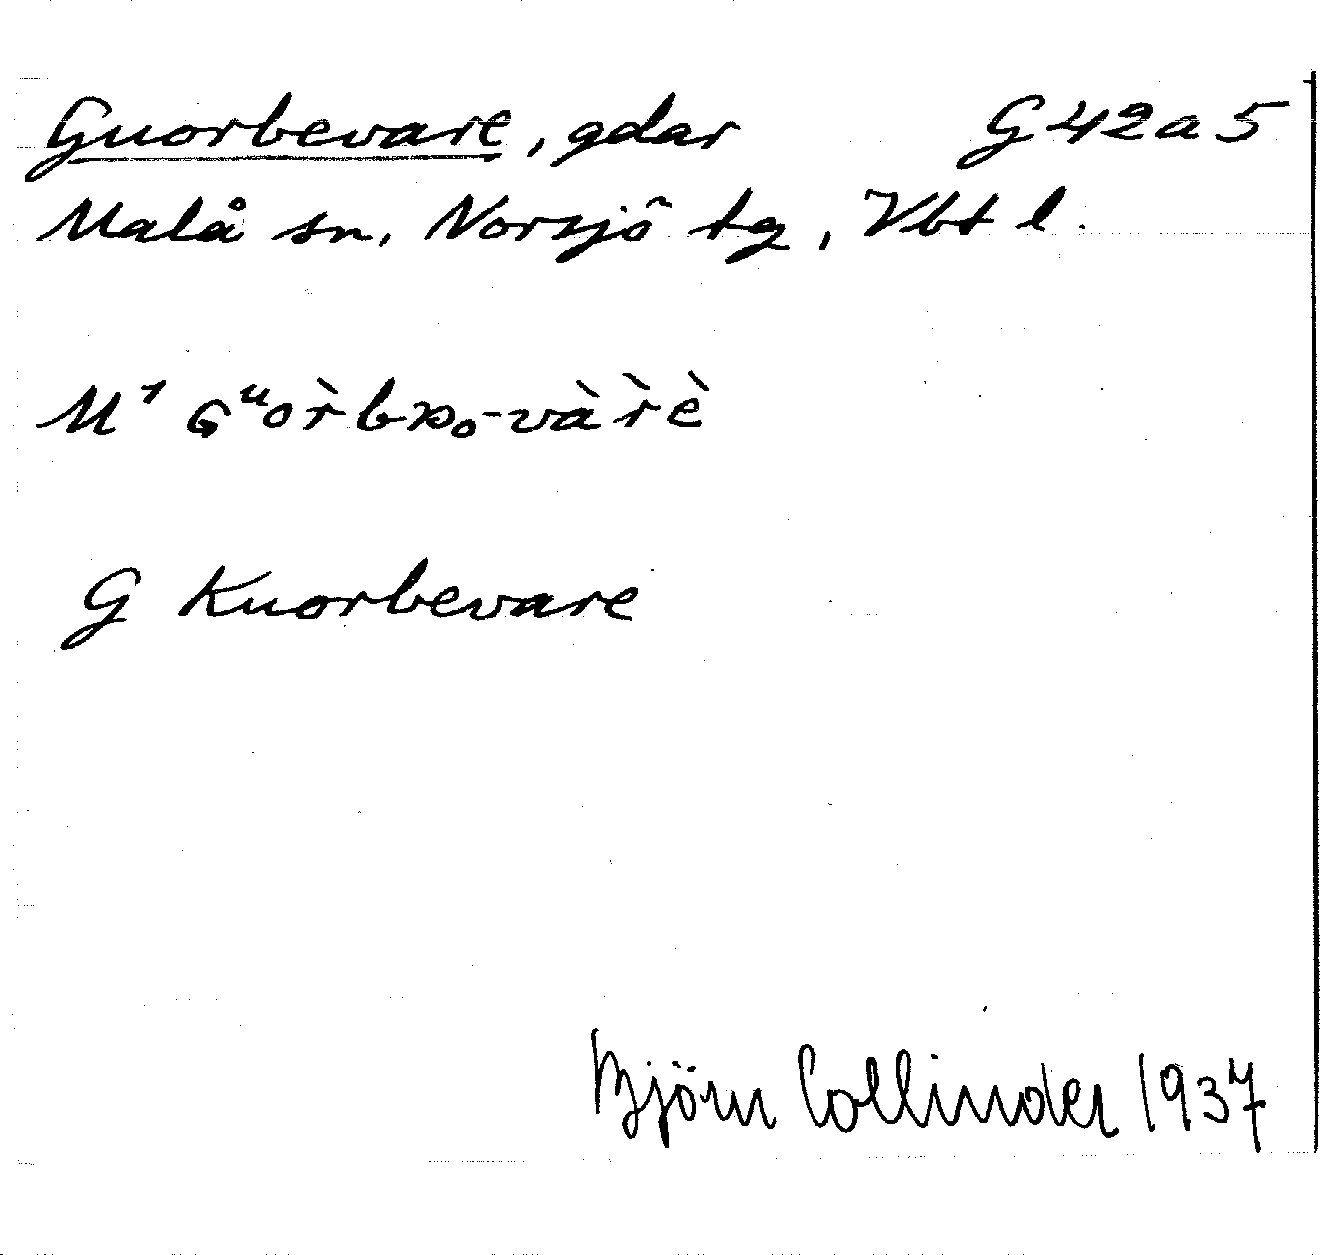 Guorbevare, gdar G42a5
Malå sn, Norsjö tg, Vbt l.
M¹
G Kuorbevare
Björn Collinder 1937